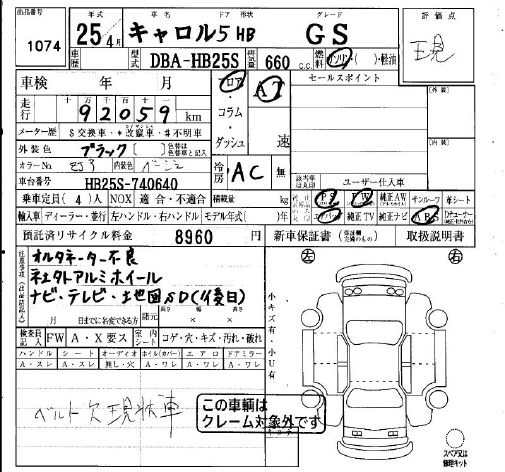 出品番号 年式 車名 ドア 形状 グレード 評価点
1074 25/4 キャロル 5 HB GS 現
車歴 型式 DBA-HB25S 排気量 660 c.c. 燃料 ガソリン・軽油
車検 年 月 フロア・コラム・ダッシュ AT 速 セールスポイント
走行 十 万 千 百 十 一
92059 km
メーター歴 S交換車・*改竄車・#不明車
外装色 ブラック 色替えは色替車と記入
カラーNo. ZJ3 内装色 ベージュ 冷房 AC 無 該当車は丸印 ユーザー仕入車
車台番号 HB25S-740640
乗車定員(4)人 NOX 適合・不適合 積載量 kg PS PW 純正AW サンルーフ 革シート
輸入車 ディーラー・並行 左ハンドル・右ハンドル モデル年式( )年 エアバック 純正TV 純正ナビ ABS
預託済リサイクル料金 8960 円 新車保証書 取扱説明書
オルタネーター不良
社外アルミホイール
ナビ・テレビ・地図SD(後日)
月 日までに名変できる方 諸元 長さ 幅 高さ
検査員記入 FW A・X要ス 室内シート コゲ・穴・キズ・汚れ・破れ
ハンドル シート オーディオ ホイル(カバー) エアロ ドアミラー
A・スレ A・スレ 無し・穴 A・ワレ A・ワレ A・ワレ
ベルト欠 現状車
この車輌は
クレーム対象外です
左 右
小キズ有・小U有
スペア又は
修理キット